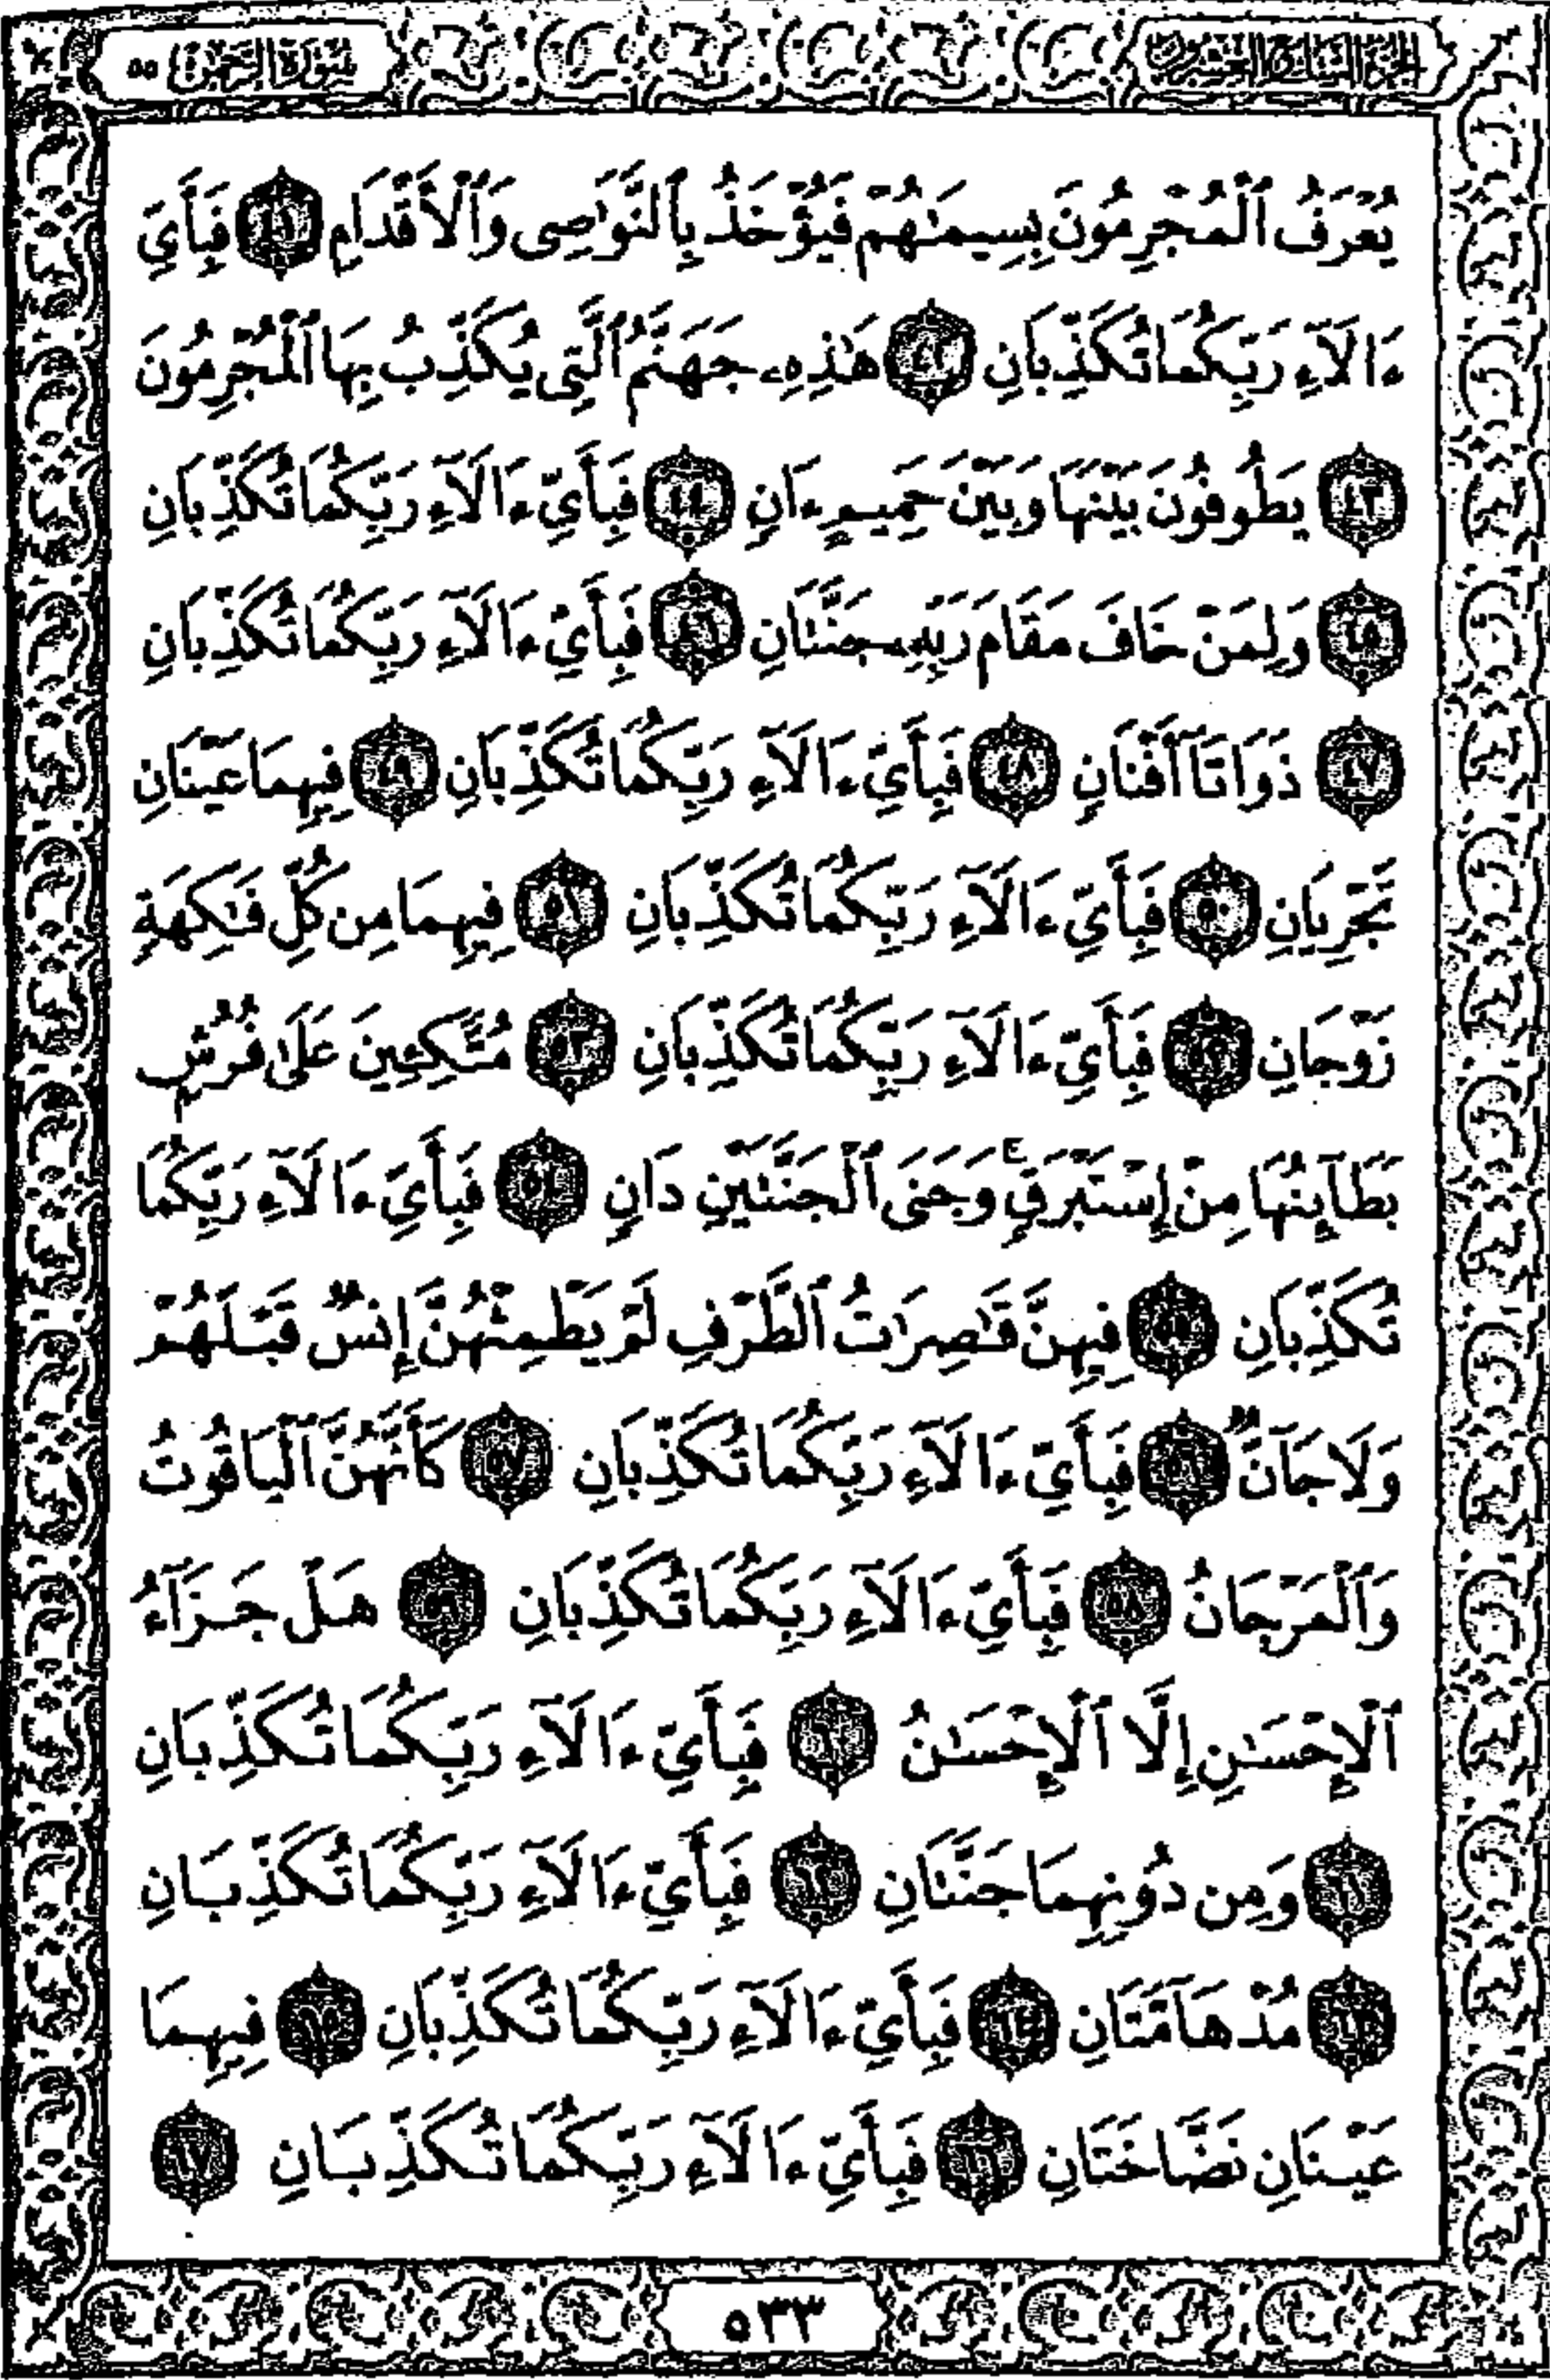 الجزء السابع والعشرون
سورة الرحمن ٥٥
يُعْرَفُ ٱلْمُجْرِمُونَ بِسِيمَٰهُمْ فَيُؤْخَذُ بِٱلنَّوَٰصِى وَٱلْأَقْدَامِ ٤١ فَبِأَىِّ
ءَالَآءِ رَبِّكُمَا تُكَذِّبَانِ ٤٢ هَٰذِهِۦ جَهَنَّمُ ٱلَّتِى يُكَذِّبُ بِهَا ٱلْمُجْرِمُونَ
٤٣ يَطُوفُونَ بَيْنَهَا وَبَيْنَ حَمِيمٍ ءَانٍ ٤٤ فَبِأَىِّ ءَالَآءِ رَبِّكُمَا تُكَذِّبَانِ
٤٥ وَلِمَنْ خَافَ مَقَامَ رَبِّهِۦ جَنَّتَانِ ٤٦ فَبِأَىِّ ءَالَآءِ رَبِّكُمَا تُكَذِّبَانِ
٤٧ ذَوَاتَآ أَفْنَانٍ ٤٨ فَبِأَىِّ ءَالَآءِ رَبِّكُمَا تُكَذِّبَانِ ٤٩ فِيهِمَا عَيْنَانِ
تَجْرِيَانِ ٥٠ فَبِأَىِّ ءَالَآءِ رَبِّكُمَا تُكَذِّبَانِ ٥١ فِيهِمَا مِن كُلِّ فَٰكِهَةٍ
زَوْجَانِ ٥٢ فَبِأَىِّ ءَالَآءِ رَبِّكُمَا تُكَذِّبَانِ ٥٣ مُتَّكِـِٔينَ عَلَىٰ فُرُشٍۭ
بَطَآئِنُهَا مِنْ إِسْتَبْرَقٍ ۚ وَجَنَى ٱلْجَنَّتَيْنِ دَانٍ ٥٤ فَبِأَىِّ ءَالَآءِ رَبِّكُمَا
تُكَذِّبَانِ ٥٥ فِيهِنَّ قَٰصِرَٰتُ ٱلطَّرْفِ لَمْ يَطْمِثْهُنَّ إِنسٌ قَبْلَهُمْ
وَلَا جَآنٌّ ٥٦ فَبِأَىِّ ءَالَآءِ رَبِّكُمَا تُكَذِّبَانِ ٥٧ كَأَنَّهُنَّ ٱلْيَاقُوتُ
وَٱلْمَرْجَانُ ٥٨ فَبِأَىِّ ءَالَآءِ رَبِّكُمَا تُكَذِّبَانِ ٥٩ هَلْ جَزَآءُ
ٱلْإِحْسَٰنِ إِلَّا ٱلْإِحْسَٰنُ ٦٠ فَبِأَىِّ ءَالَآءِ رَبِّكُمَا تُكَذِّبَانِ
٦١ وَمِن دُونِهِمَا جَنَّتَانِ ٦٢ فَبِأَىِّ ءَالَآءِ رَبِّكُمَا تُكَذِّبَانِ
٦٣ مُدْهَآمَّتَانِ ٦٤ فَبِأَىِّ ءَالَآءِ رَبِّكُمَا تُكَذِّبَانِ ٦٥ فِيهِمَا
عَيْنَانِ نَضَّاخَتَانِ ٦٦ فَبِأَىِّ ءَالَآءِ رَبِّكُمَا تُكَذِّبَانِ ٦٧
٥٣٣